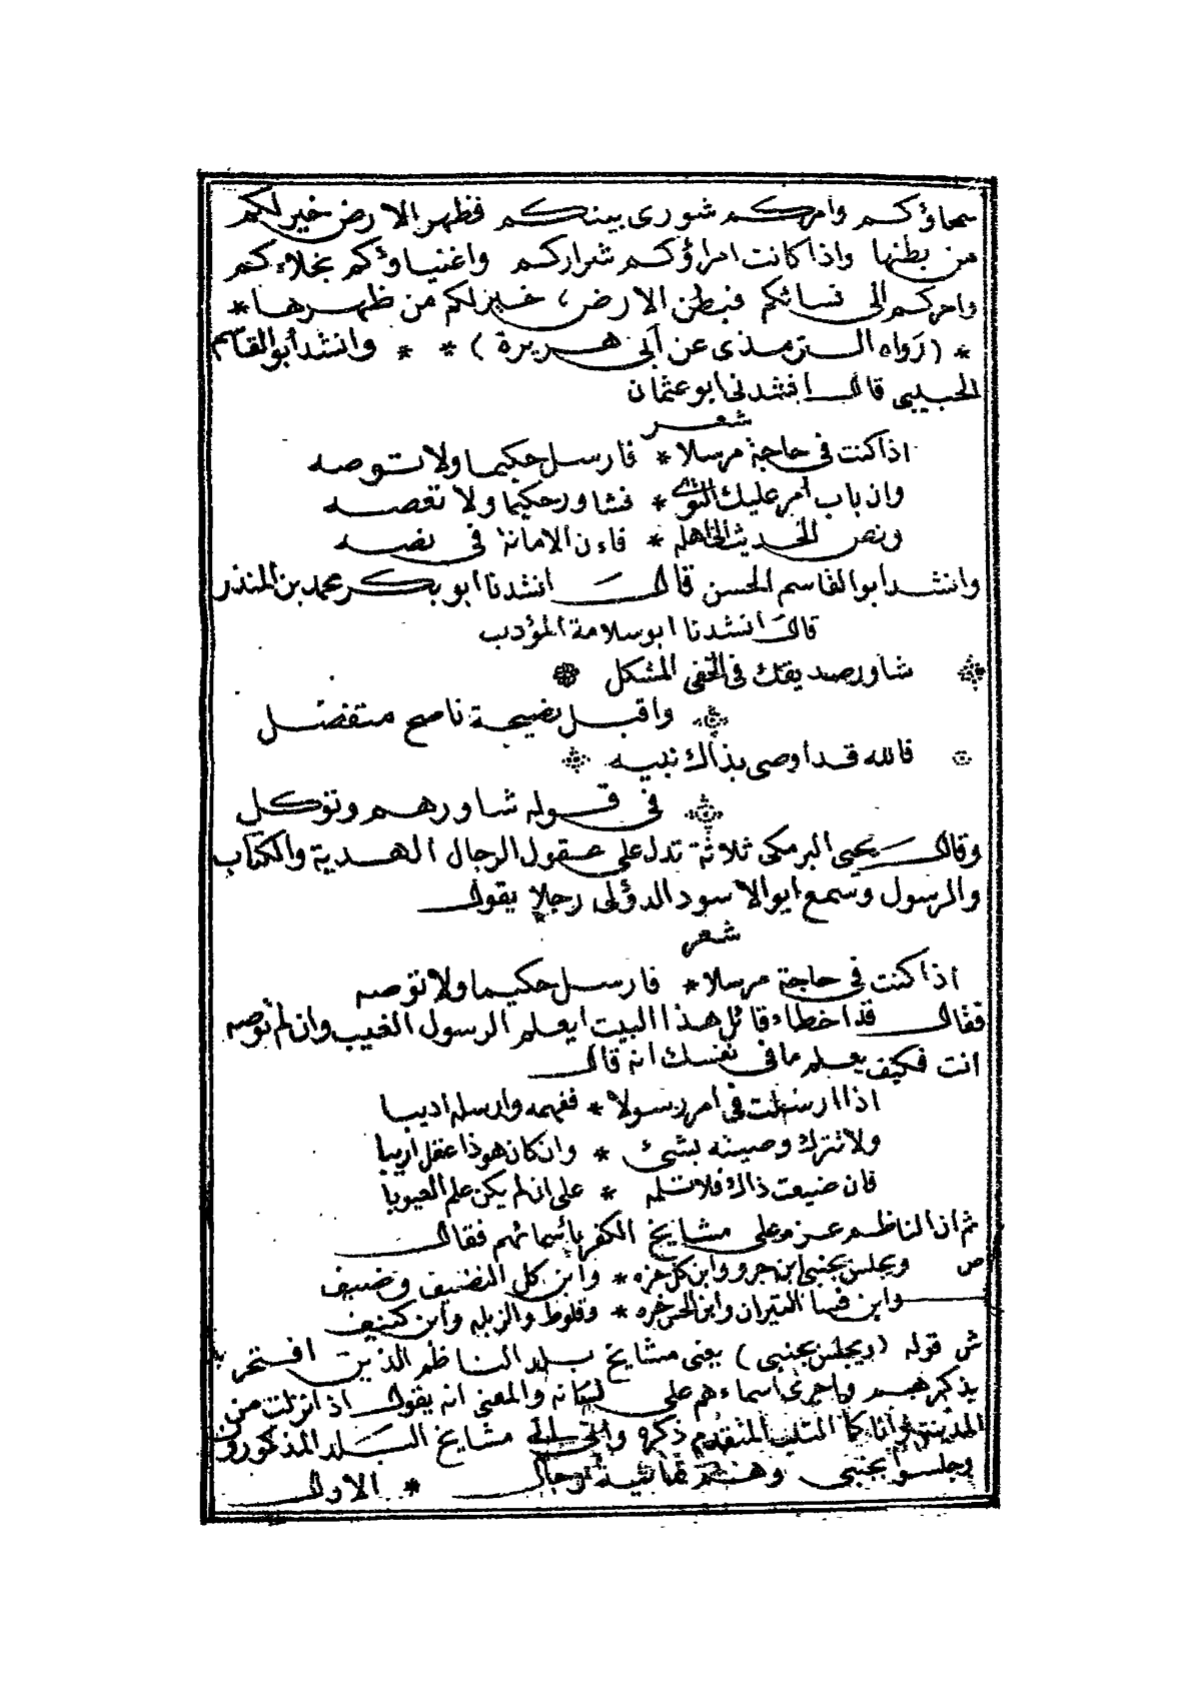 سمحاؤكم وامركم شورى بينكم فظهر الارض خير لكم
من بطنها واذا كانت امراؤكم شراركم واغنياؤكم بخلاءكم
وامركم الى نسائكم فبطن الارض، خير لكم من ظهرها *
* (رواه الترمذى عن أبى هريرة) * * وانشد أبو القاسم
الحبيبى قال انشدنى ابو عثمان
شعر
اذا كنت فى حاجة مرسلا * فارسل حكيما ولا توصه
وان باب امر عليك التوى * فشاور حكيما ولا تعصه
ونص الحديث الى اهله * فاءن الامانة فى نصه
وانشد ابو القاسم الحسن قال انشدنا ابو بكر محمد بن المنذر
قال انشدنا ابو سلامة المؤدب
شاور صديقك فى الخفى المشكل
واقبل نصيحة ناصح متفضل
فالله قد اوصى بذاك نبيه
فى قوله شاورهم وتوكل
وقال يحيى البرمكى ثلاثة تدل على عقول الرجال الهدية والكتاب
والرسول وسمع ابو الاسود الدؤلى رجلا يقول
شعر
اذا كنت فى حاجة مرسلا * فارسل حكيما ولا توصه
فقال قد اخطاء قائل هذا البيت ايعلم الرسول الغيب وان لم توصه
انت فكيف يعلم ما فى نفسك انه قال
اذا ارسلت فى امر رسولا * ففهمه وارسله اديبا
ولا تترك وصيته بشئ * وان كان هو ذا عقل اريبا
فان ضيعت ذاك فلا تلمه * على ان لم يكن علم الغيوبا
ثم ان الناظم عزم وعلى مشايخ الكفر بأسمائهم فقال
ص ويجلس بجنبى ابن جرو وابن كل خره * وابن كل النضيف وضيف
وابن فسا التيران وابن الخره * وقلوط والزبله وابن كنيف
ش قوله (ويجلس بجنبى) يعنى مشايخ بلد الناظم الذين افتخر
بذكرهم واجرى اسماءهم على لسانه والمعنى انه يقول اذا نزلت من
المدينة وانا كما المتلب المتقدم ذكره مشايخ البلد المذكورون
وجلسوا بجنبى وهم ثمانية رجال * الاول